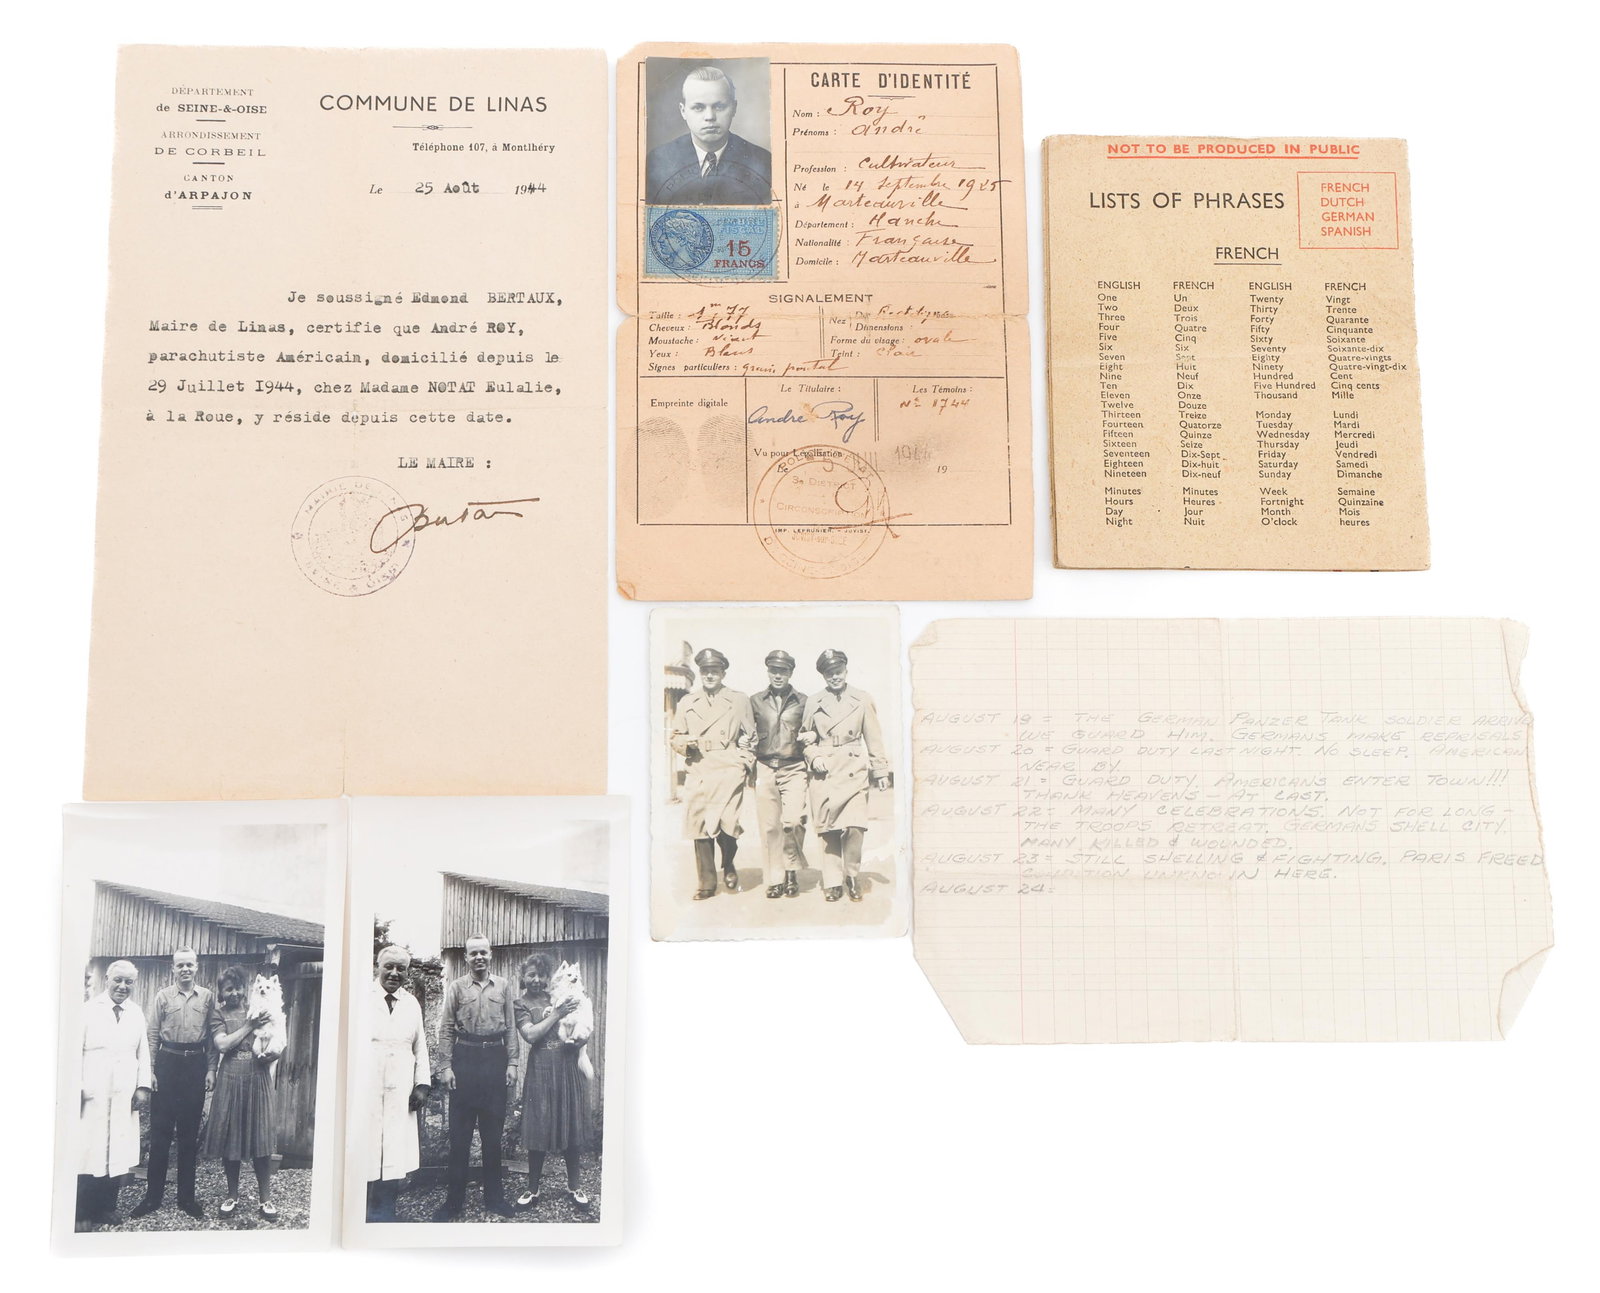 DÉPARTEMENT
de SEINE-&-OISE
ARRONDISSEMENT
DE CORBEIL
CANTON
d'ARPAJON
COMMUNE DE LINAS
Téléphone 107, à Montlhéry
Le 25 Août 1944
Je soussigné Edmond BERTAUX,
Maire de Linas, certifie que André ROY,
parachutiste Américain, domicilié depuis le
29 Juillet I944, chez Madame NOTAT Eulalie,
à la Roue, y réside depuis cette date.
LE MAIRE :
CARTE D'IDENTITÉ
Nom : Roy
Prénoms : André
Profession : Cultivateur
Né le 14 Septembre 1925
à Marteauville
Département : Manche
Nationalité : Française
Domicile : Marteauville
15
FRANCS
SIGNALEMENT
Taille : 1m77
Cheveux : Blonds
Moustache : néant
Yeux : Bleus
Signes particuliers :
Nez
Dimensions :
Forme du visage : ovale
Teint : Clair
Empreinte digitale
Le Titulaire :
André Roy
Les Témoins :
No 1744
Vu pour Légalisation
Le 5 JUIL 1944 19
3e DISTRICT
CIRCONSCRIPTION
IMP. LEPRUNIER. - JUVISY.
NOT TO BE PRODUCED IN PUBLIC
LISTS OF PHRASES
FRENCH
DUTCH
GERMAN
SPANISH
FRENCH
ENGLISH FRENCH ENGLISH FRENCH
One Un Twenty Vingt
Two Deux Thirty Trente
Three Trois Forty Quarante
Four Quatre Fifty Cinquante
Five Cinq Sixty Soixante
Six Six Seventy Soixante-dix
Seven Sept Eighty Quatre-vingts
Eight Huit Ninety Quatre-vingt-dix
Nine Neuf Hundred Cent
Ten Dix Five Hundred Cinq cents
Eleven Onze Thousand Mille
Twelve Douze
Thirteen Treize Monday Lundi
Fourteen Quatorze Tuesday Mardi
Fifteen Quinze Wednesday Mercredi
Sixteen Seize Thursday Jeudi
Seventeen Dix-Sept Friday Vendredi
Eighteen Dix-huit Saturday Samedi
Nineteen Dix-neuf Sunday Dimanche
Minutes Minutes Week Semaine
Hours Heures Fortnight Quinzaine
Day Jour Month Mois
Night Nuit O'clock heures
AUGUST 19 = THE GERMAN PANZER TANK SOLDIER ARRIVE
WE GUARD HIM. GERMANS MAKE REPRISALS
AUGUST 20 = GUARD DUTY LAST NIGHT. NO SLEEP. AMERICAN
NEAR BY
AUGUST 21 = GUARD DUTY. AMERICANS ENTER TOWN!!!
THANK HEAVENS - AT LAST.
AUGUST 22 = MANY CELEBRATIONS. NOT FOR LONG -
THE TROOPS RETREAT. GERMANS SHELL CITY.
MANY KILLED & WOUNDED.
AUGUST 23 = STILL SHELLING & FIGHTING. PARIS FREED
CONDITION UNKNOWN HERE.
AUGUST 24 =